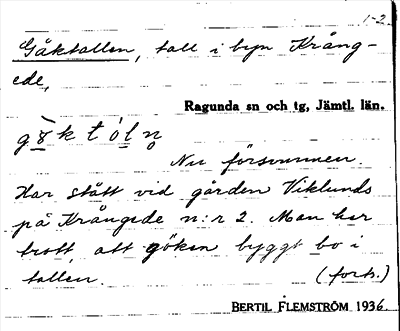 1-2
Göktallen, tall i byn Krång-
ede,
Ragunda sn och tg, Jämtl. län.
Nu försvunnen.
Har stått vid gården Viklunds
på Krångede n:r 2. Man har
trott, att göken byggt bo i
tallen. (forts.)
BERTIL FLEMSTRÖM 1936.